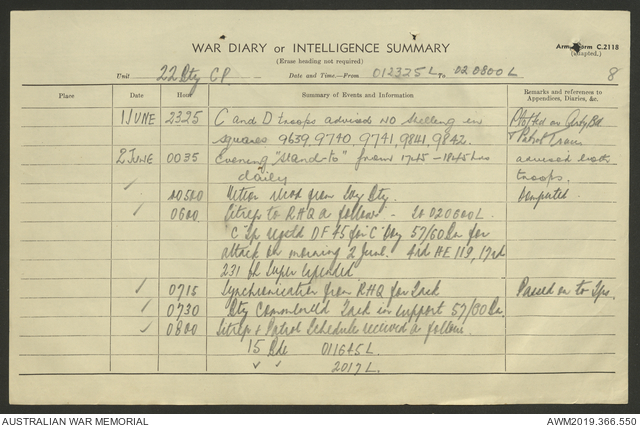 WAR DIARY or INTELLIGENCE SUMMARY
Army Form C.2118
(adapted.)
(Erase heading not required)
Unit 22 Bty C.P. Date and Time—From 012325L To 020800L
8
Place Date Hour Summary of Events and Information Remarks and references to Appendices, Diaries, &c.
1 JUNE 2325 C and D troops advised NO shelling in Plotted on Arty Bd
squares 9639, 9740, 9741, 9841, 9842. & Patrol Trace
2 JUNE 0035 Evening "Stand-to" from 1745 – 1845 hrs advised both
daily troops.
0500 Meteor recd from Svy Bty. Computed
0600 Sitrep to RHQ as follows - to 020600L.
C Tp regtd DF 45 for C Coy 57/60 Bn for
attack on morning 2 June. 4rd HE 119, 17rd
231 fd super expended
0715 Synchronisation from RHQ for Task Passed on to Tps.
0730 Bty Commenced Task in support 57/60 Bn.
0800 Sitrep & Patrol Schedule received as follows
15 Bde 011645L
2017L.
AUSTRALIAN WAR MEMORIAL
AWM2019.366.550